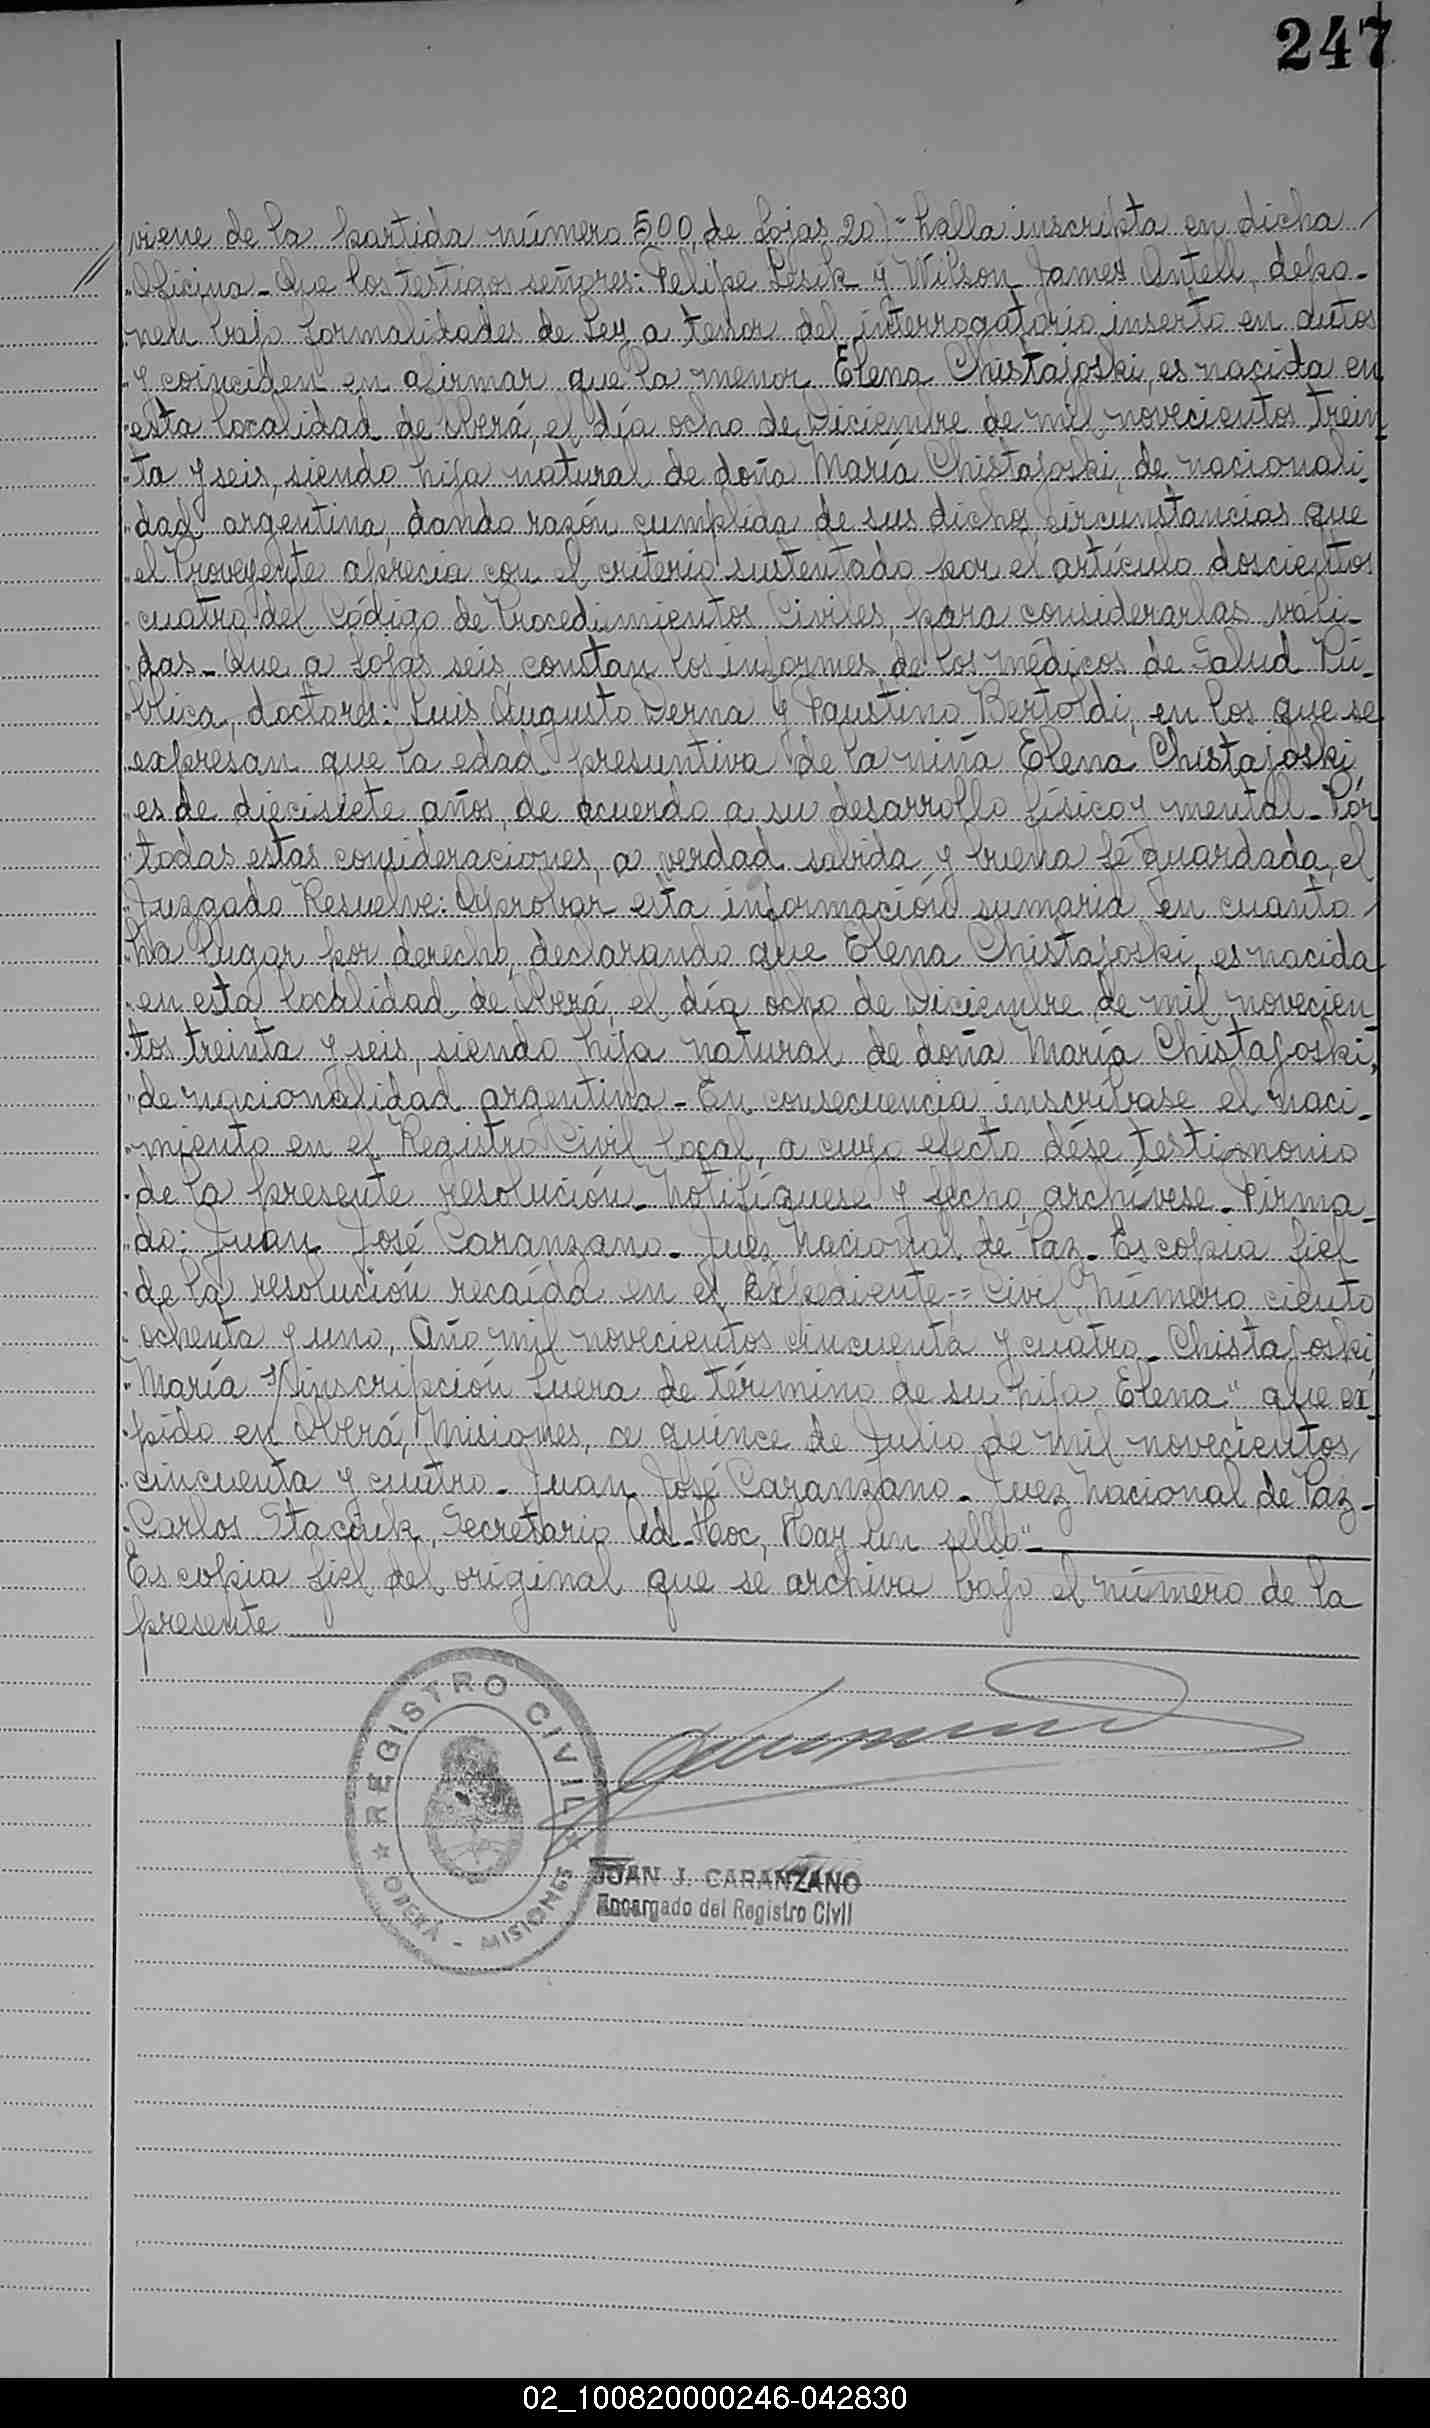 247
viene de la partida número 500, de fojas 20)-"halla inscripta en dicha
"Oficina.- Que los testigos señores: Felipe Lesik y Wilson James Antell, depo-
"nen bajo formalidades de Ley a tenor del interrogatorio inserto en autos
"y coinciden en afirmar que la menor Elena Chistajoski, es nacida en
"esta localidad de Oberá, el día ocho de Diciembre de mil novecientos trein
"ta y seis, siendo hija natural de doña María Chistajoski, de nacionali-
"dad argentina, dando razón cumplida de sus dichos, circunstancias que
"el Proveyente aprecia con el criterio sustentado por el artículo doscientos
"cuatro del Código de Procedimientos Civiles, para considerarlas váli-
"das.- Que a fojas seis constan los informes de los médicos de Salud Pú-
"blica, doctores: Luis Augusto Derna y Faustino Bertoldi, en los que se
"expresan que la edad presuntiva de la niña Elena Chistajoski
"es de diecisiete años, de acuerdo a su desarrollo físico y mental.- Por
"todas estas consideraciones, a verdad sabida y buena fé guardada, el
"Juzgado Resuelve: Aprobar esta información sumaria en cuanto
"ha lugar por derecho, declarando que Elena Chistajoski, es nacida
"en esta localidad de Oberá, el día ocho de Diciembre de mil novecien
"tos treinta y seis, siendo hija natural de doña María Chistajoski,
"de nacionalidad argentina.- En consecuencia inscríbase el naci-
"miento en el Registro Civil local, a cuyo efecto dése testimonio
"de la presente resolución.- Notifíquese y fecho, archívese.- Firma-
"do: Juan José Caranzano.- Juez Nacional de Paz.- Es copia fiel
"de la resolución recaída en el Expediente -= Civil, Número ciento
"ochenta y uno, Año mil novecientos cincuenta y cuatro.- Chistajoski
"María s/inscripción fuera de término de su hija Elena" que ex
"pido en Oberá, Misiones, a quince de Julio de mil novecientos
"cincuenta y cuatro.- Juan José Caranzano.- Juez Nacional de Paz.-
"Carlos Staciuk, Secretario Ad-Hoc, Hay un sello"-
Es copia fiel del original que se archiva bajo el número de la
presente
REGISTRO CIVIL
OBERA - MISIONES
JUAN J. CARANZANO
Encargado del Registro Civil
02_100820000246-042830